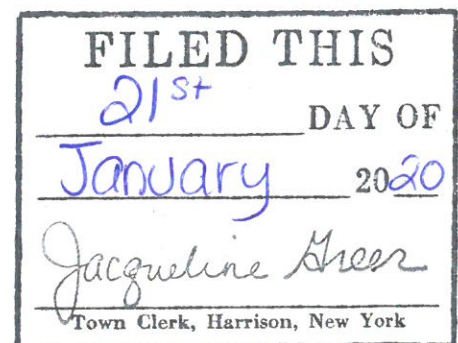 FILED THIS
21st
DAY OF
January 2020
Jacqueline Greer
Town Clerk, Harrison, New York